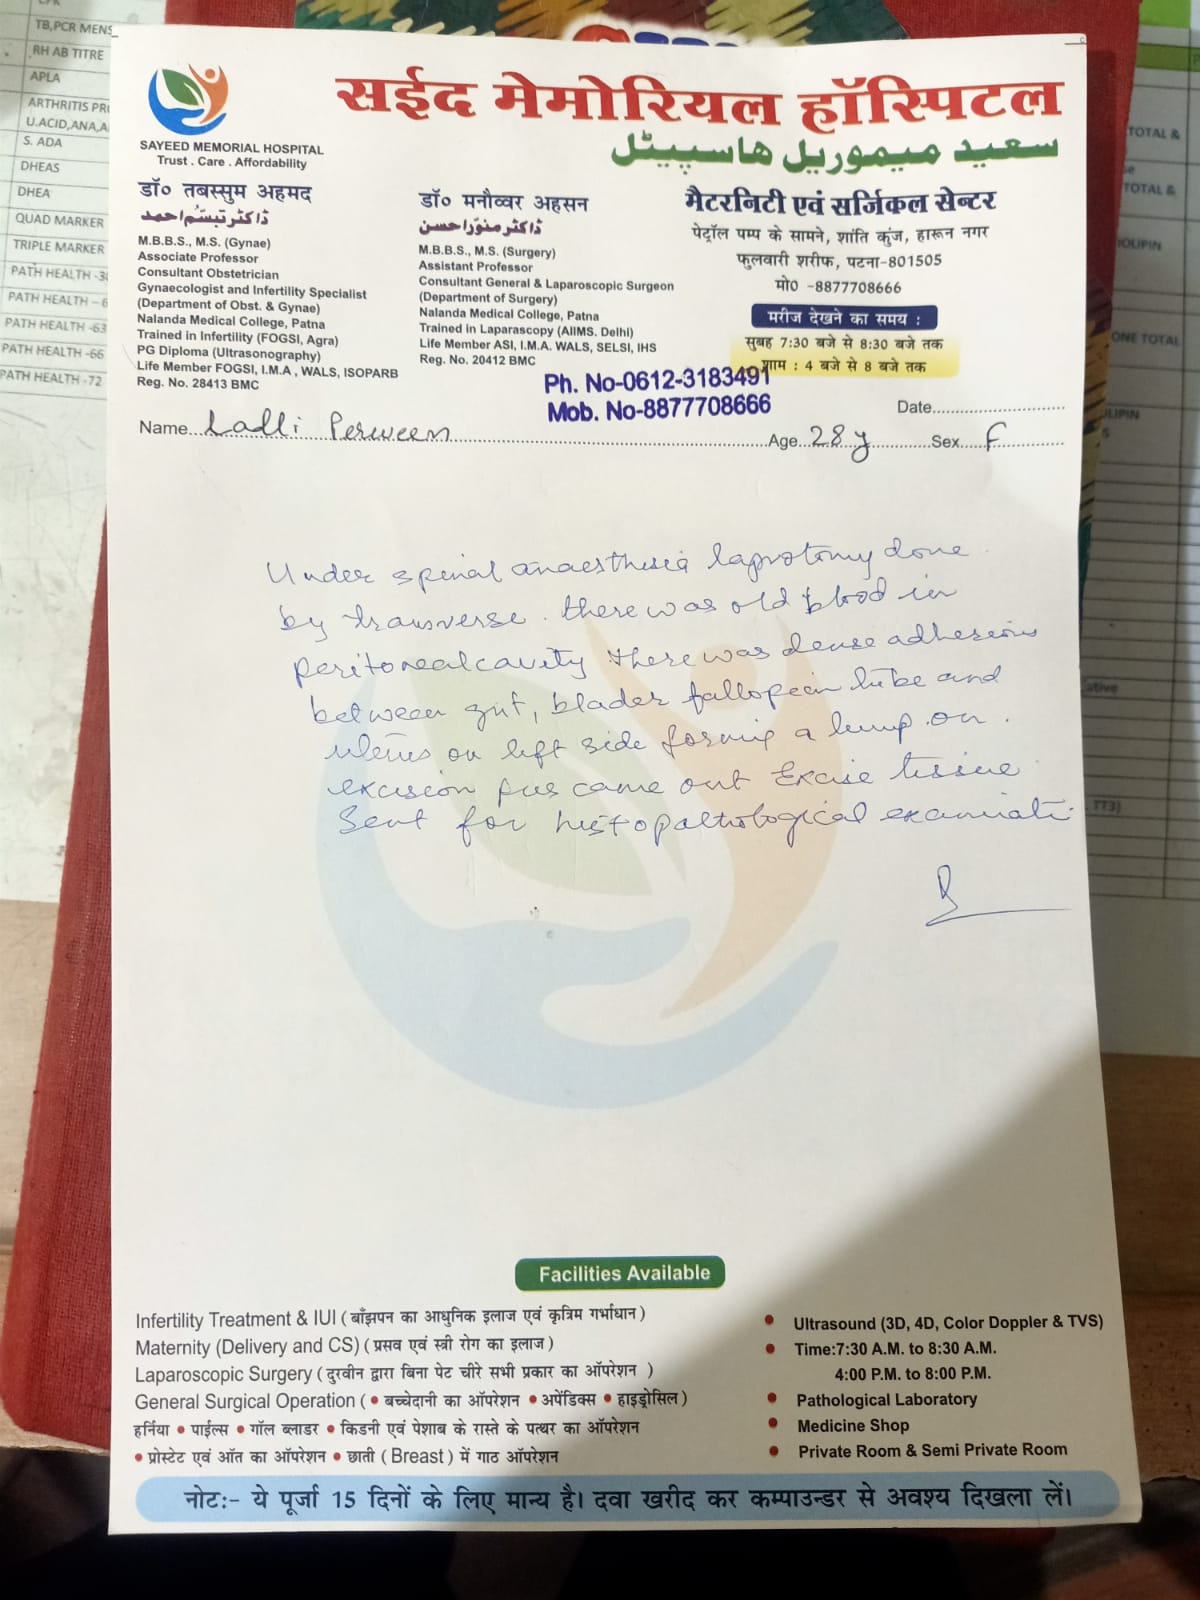 TB,PCR MENS
RH AB TITRE
APLA
ARTHRITIS PR
U.ACID,ANA,A
S. ADA
DHEAS
DHEA
QUAD MARKER
TRIPLE MARKER
PATH HEALTH -3
PATH HEALTH – 6
PATH HEALTH -63
PATH HEALTH -66
PATH HEALTH -72
SAYEED MEMORIAL HOSPITAL
Trust . Care . Affordability
सईद मेमोरियल हॉस्पिटल
سعید میموریل ہاسپیٹل
डॉ० तबस्सुम अहमद
ڈاکٹر تبسّم احمد
M.B.B.S., M.S. (Gynae)
Associate Professor
Consultant Obstetrician
Gynaecologist and Infertility Specialist
(Department of Obst. & Gynae)
Nalanda Medical College, Patna
Trained in Infertility (FOGSI, Agra)
PG Diploma (Ultrasonography)
Life Member FOGSI, I.M.A , WALS, ISOPARB
Reg. No. 28413 BMC
डॉ० मनौव्वर अहसन
ڈاکٹر منوّر احسن
M.B.B.S., M.S. (Surgery)
Assistant Professor
Consultant General & Laparoscopic Surgeon
(Department of Surgery)
Nalanda Medical College, Patna
Trained in Laparascopy (AIIMS. Delhi)
Life Member ASI, I.M.A. WALS, SELSI, IHS
Reg. No. 20412 BMC
मैटरनिटी एवं सर्जिकल सेन्टर
पेट्रॉल पम्प के सामने, शांति कुंज, हारून नगर
फुलवारी शरीफ, पटना-801505
मो० -8877708666
मरीज देखने का समय :
सुबह 7:30 बजे से 8:30 बजे तक
शाम : 4 बजे से 8 बजे तक
Ph. No-0612-3183491
Mob. No-8877708666
Date
Name Ladli Perween Age 28y Sex F
Under spinal anaesthesia laprotomy done
by transverse. there was old blood in
peritoneal cavity there was dense adhesions
between gut, blader fallopein tube and
uterus on left side forming a lump. on
excision pus came out Excise tissue
Sent for histopathological examinati
Facilities Available
Infertility Treatment & IUI ( बाँझपन का आधुनिक इलाज एवं कृत्रिम गर्भाधान )
Maternity (Delivery and CS) ( प्रसव एवं स्त्री रोग का इलाज )
Laparoscopic Surgery ( दुरवीन द्वारा बिना पेट चीरे सभी प्रकार का ऑपरेशन )
General Surgical Operation ( • बच्चेदानी का ऑपरेशन • अपेंडिक्स • हाइड्रोसिल )
हर्निया • पाईल्स • गॉल ब्लाडर • किडनी एवं पेशाब के रास्ते के पत्थर का ऑपरेशन
• प्रोस्टेट एवं आँत का ऑपरेशन • छाती ( Breast ) में गाठ ऑपरेशन
• Ultrasound (3D, 4D, Color Doppler & TVS)
• Time:7:30 A.M. to 8:30 A.M.
4:00 P.M. to 8:00 P.M.
• Pathological Laboratory
• Medicine Shop
• Private Room & Semi Private Room
नोटः- ये पूर्जा 15 दिनों के लिए मान्य है। दवा खरीद कर कम्पाउन्डर से अवश्य दिखला लें।